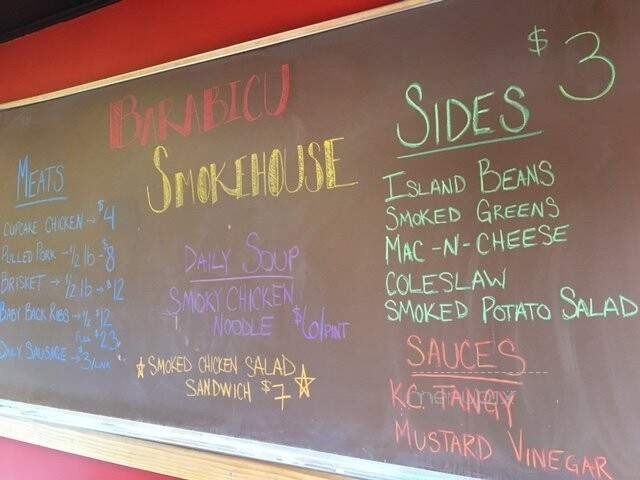 BARABICU
SMOKEHOUSE
MEATS
CUPCAKE CHICKEN → $4
PULLED PORK - 1/2 lb - $8
BRISKET → 1/2 lb → $12
BABY BACK RIBS → 1/2 $12
FULL $23
DAILY SAUSAGE → $3/LINK
DAILY SOUP
SMOKY CHICKEN
NOODLE $6/PINT
☆ SMOKED CHICKEN SALAD
SANDWICH $7 ☆
SIDES $3
ISLAND BEANS
SMOKED GREENS
MAC-N-CHEESE
COLESLAW
SMOKED POTATO SALAD
SAUCES
K.C. TANGY
MUSTARD VINEGAR